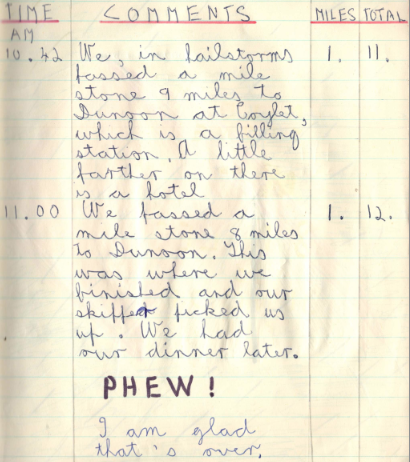 TIME COMMENTS MILES TOTAL
AM
10.42 We, in hailstorms 1. 11.
passed a mile
stone 9 miles to
Dunoon at Coylet,
which is a filling
station. A little
farther on there
is a hotel
11.00 We passed a 1. 12.
mile stone 8 miles
to Dunoon. This
was where we
finished and our
skipper picked us
up. We had
our dinner later.
PHEW!
I am glad
that's over.